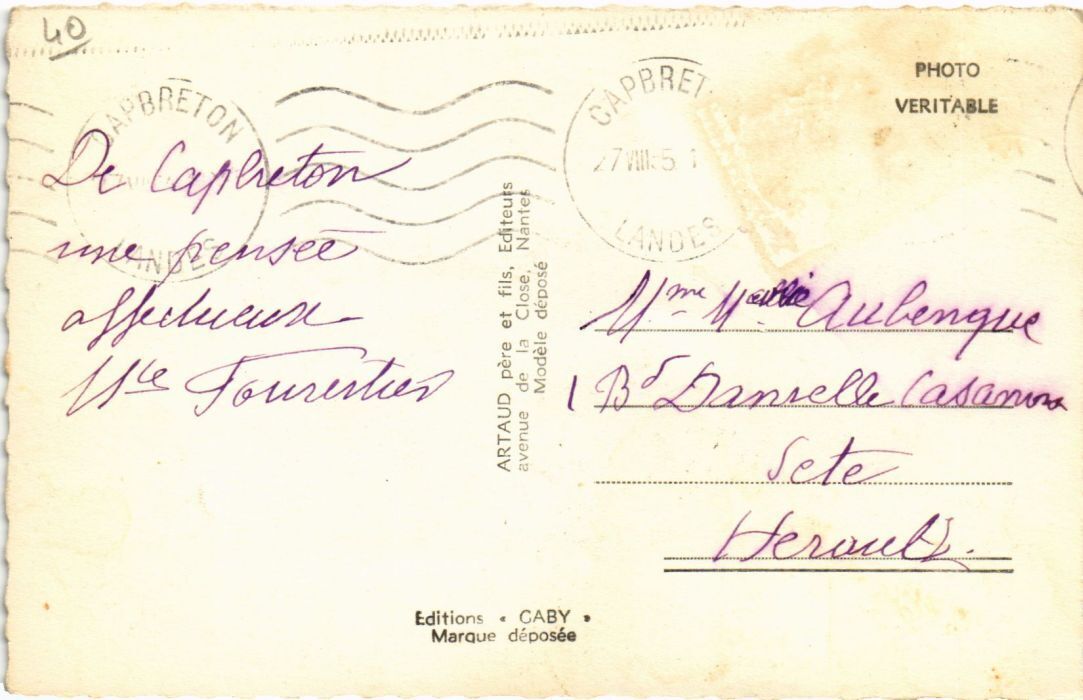 40
PHOTO
VERITABLE
CAPBRETON
LANDES
CAPBRET
27 VIII 5 1
LANDES
De Capbreton
une pensée
affectueux
Mce Fourestier
ARTAUD père et fils, Editeurs
avenue de la Close, Nantes
Modèle déposé
Mme Aubenque
1 Bd Danielle Casanova
Sete
Herault.
Editions « GABY »
Marque déposée